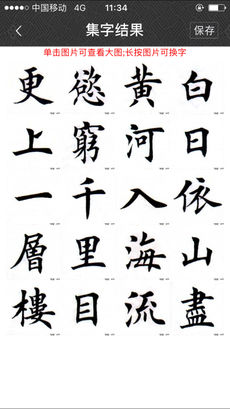 中国移动 4G 11:34
集字结果 保存
单击图片可查看大图;长按图片可换字
白日依山盡
黄河入海流
慾窮千里目
更上一層樓